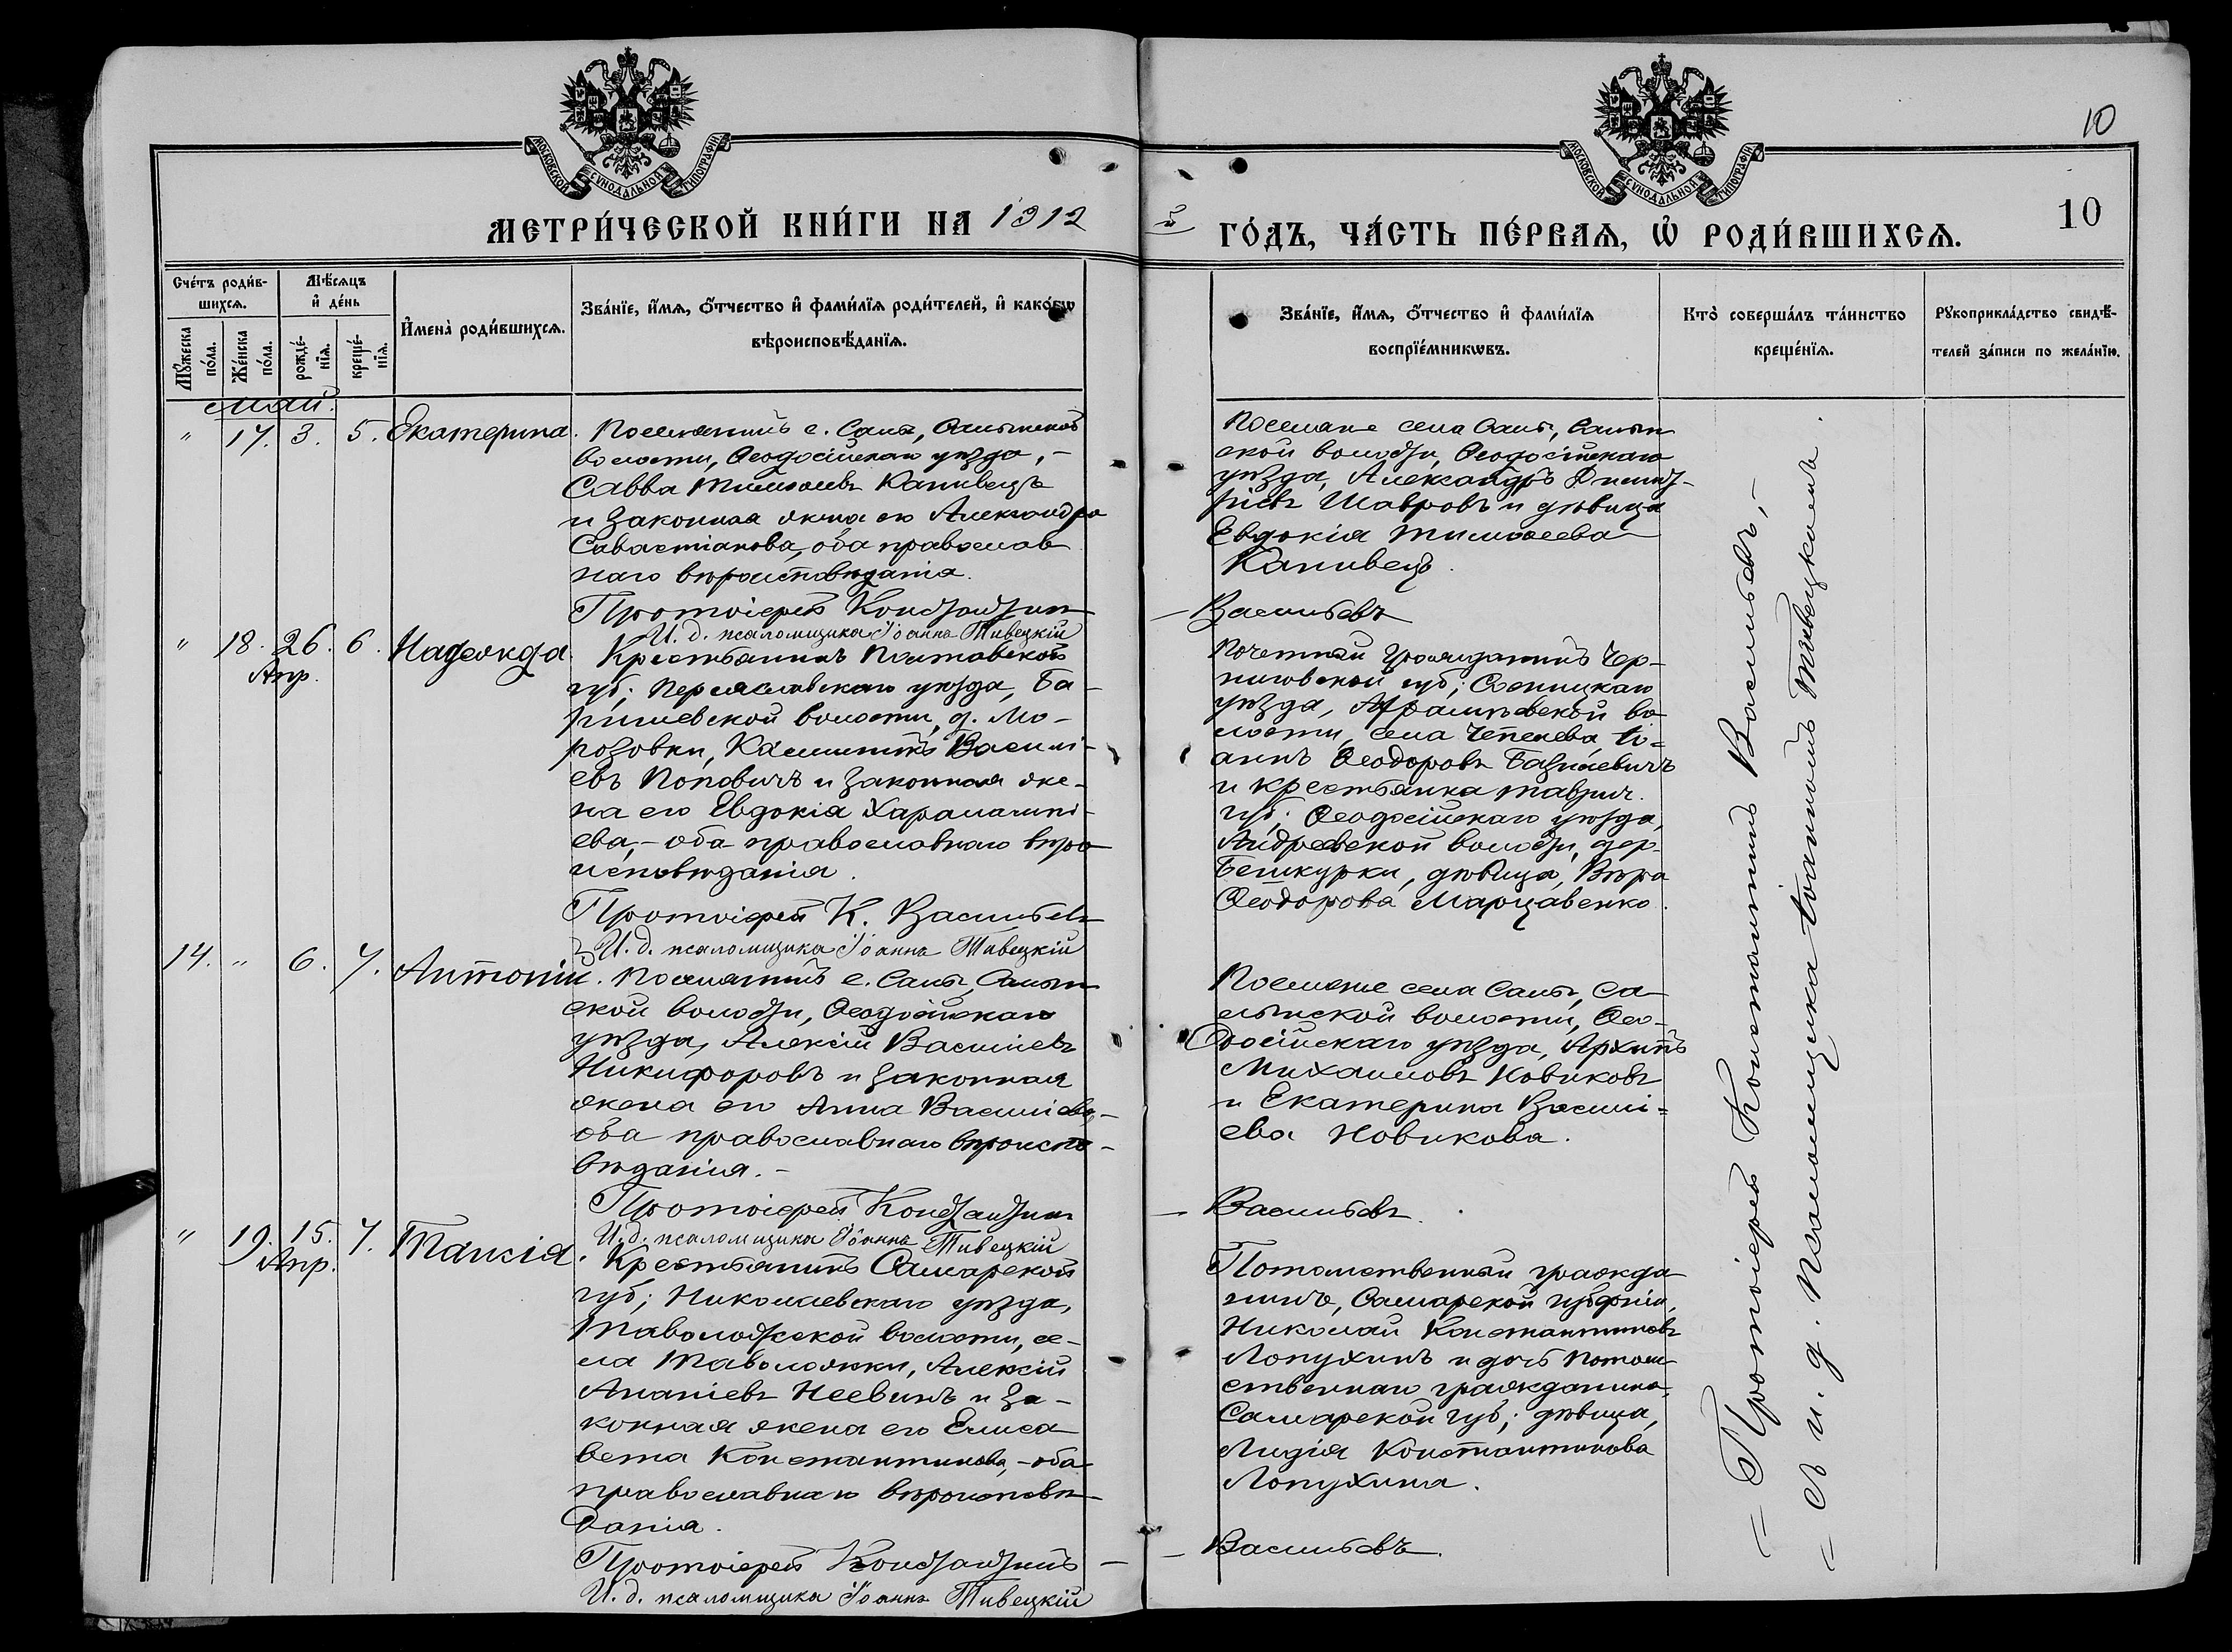 10
МОСКОВСКОЙ СѴНОДАЛЬНОЙ ТИПОГРАФІИ
МОСКОВСКОЙ СѴНОДАЛЬНОЙ ТИПОГРАФІИ
МЕТРИ́ЧЕСКОЙ КНИ́ГИ НА 1912
й ГО́ДЪ, ЧА́СТЬ ПЕ́РВАѦ, Ѡ҆ РОДИ́ВШИХСѦ.
10
Сче́тъ роди́в-
шихсѧ.
Мѣ́сѧцъ
и҆ де́нь
Мꙋ́жеска
по́ла.
Же́нска
по́ла.
рожде́-
нїѧ.
креще́-
нїѧ.
И҆мена̀ роди́вшихсѧ.
Зва́нїе, и҆́мѧ, ѻ҆́тчество и҆ фами́лїѧ роди́телей, и҆ како́вѡ
вѣроисповѣ́данїѧ.
Зва́нїе, и҆́мѧ, ѻ҆́тчество и҆ фами́лїѧ
воспрїе́мникѡвъ.
Кто̀ соверша́лъ та́инство
креще́нїѧ.
Рꙋкоприкла́дство свидѣ́-
телей за́писи по жела́нїю.
Май.
" 17. 3. 5. Екатерина.
Поселянинъ с. Салы, Салынской
волости, Ѳеодосійскаго уѣзда, –
Савва Тимоѳеевъ Капивецъ
и законная жена его Александра
Савастіанова, оба православ
наго вѣроисповѣданія.
Протоіерей Константин
И. д. псаломщика Іоаннъ Тивецкій
Поселяне села Салы, Салын
ской волости, Ѳеодосійскаго
уѣзда, Александръ Димит-
ріевъ Шавровъ и дѣвица
Евдокія Тимоѳеева
Капивецъ.
– Васильевъ
" 18. 26. 6. Надежда.
Апр.
Крестьянинъ Полтавской
губ; Переяславскаго уѣзда, Ба-
ришевской волости, д. Мо-
розовки, Василі-
евъ Поповичъ и законная же-
на его Евдокія Харалампі-
ева, – оба православнаго вѣро
исповѣданія.
Протоіерей К. Васильевъ
И. д. псаломщика Іоаннъ Тивецкій
Почетный гражданинъ Чер-
ниговской губ; Сосницкаго
уѣзда, во
лости, села Іо=
аннъ Ѳеодоровъ Базилевичъ
и крестьянка Таврич.
губ; Ѳеодосійскаго уѣзда,
Андреевской волости, дер.
Бешкурки, дѣвица, Вѣра
Ѳеодорова Марцавенко.
14. " 6. 7. Антоній.
Поселянинъ с. Салы, Салын
ской волости, Ѳеодосійскаго
уѣзда, Алексій Василіевъ
Никифоровъ и законная
жена его Анна Василіева, –
оба православнаго вѣроиспо-
вѣданія. –
Протоіерей Константин
И. д. псаломщика Іоаннъ Тивецкій
Поселяне села Салы, Са
лынской волости, Ѳео-
досійскаго уѣзда, Архипъ
Михаиловъ Новиковъ
и Екатерина Васили=
ева Новикова.
– Васильевъ.
" 19. 15. 7. Таисія.
Апр.
Крестьянинъ Самарской
губ; Николаевскаго уѣзда,
Таволожской волости, се-
ла Таволожки, Алексій
Ананіевъ Неевинъ и за-
конная жена его Елиса
вета Константинова, – оба
православнаго вѣроисповѣ
данія.
Протоіерей Константинъ –
И. д. псаломщика Іоаннъ Тивецкій
Потомственный гражда
нинъ, Самарской губерніи,
Николай Константиновъ
Лопухинъ и дочь потом
ственнаго гражданина,
Самарской губ; дѣвица,
Лидія Константинова
Лопухина.
– Васильевъ.
= Протоіерей Константинъ Васильевъ, –
= съ и. д. Псаломщика Іоанномъ Тивецкимъ.